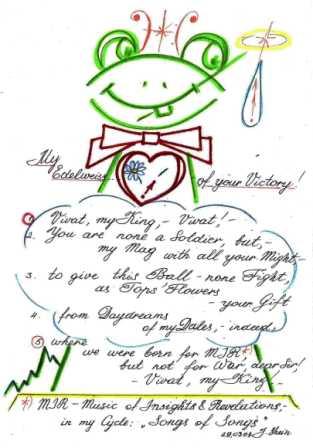 My
Edelweiss of your Victory!
1. Vivat, my King, - Vivat! -
2. You are none a Soldier, but, -
my Mag with all your Might -
3. to give this Ball - none Fight,
as Tops' Flowers
- your Gift
4. from Daydreams
of my Dales, - indeed,
5. where
we were born for MIR, *)
but not for War, dear Sir!
- Vivat, my King -
*) MIR - Music of Insights & Revelations, -
in my Cycle: "Songs of Songs"